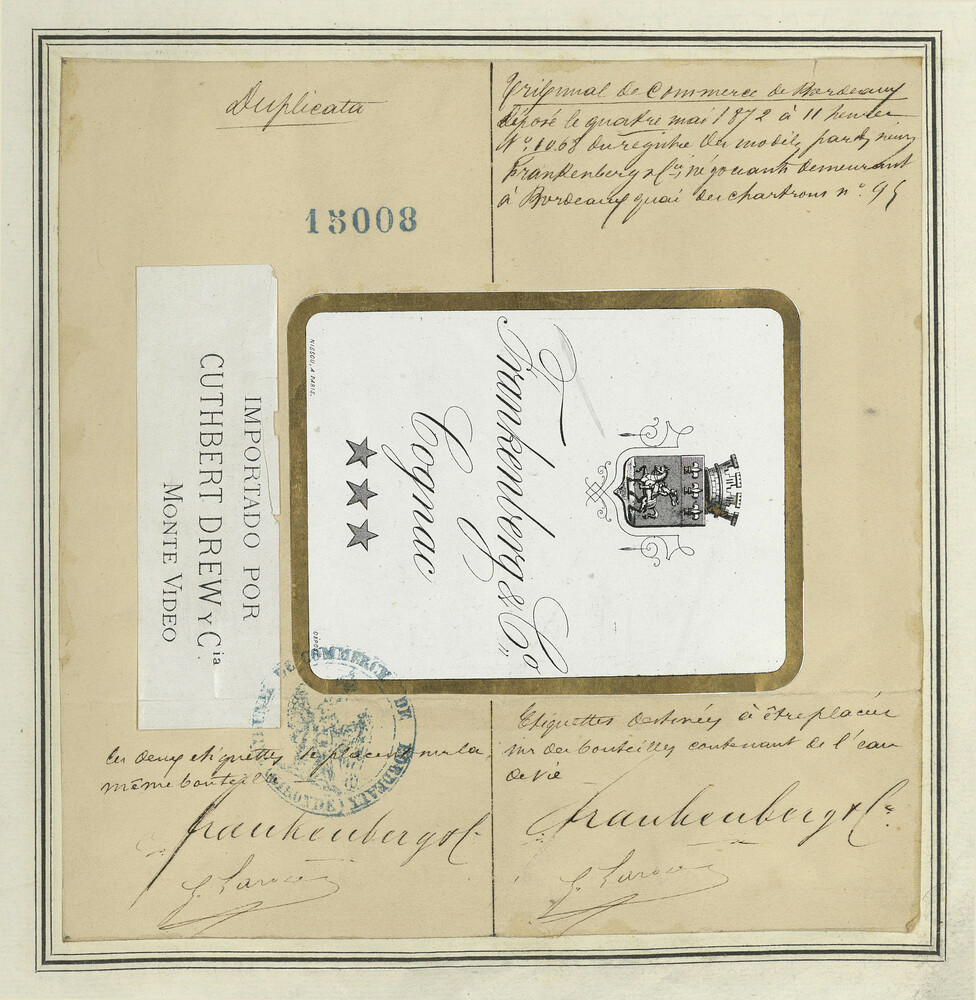 Duplicata
15008
Tribunal de Commerce de Bordeaux
déposé le quatre mai 1872 à 11 heures
N° 1068 du registre des modèles, par
Frankenberg & Cie, négociants demeurant
à Bordeaux quai des chartrons n° 95
IMPORTADO POR
CUTHBERT DREW Y Cia
MONTE VIDEO
Frankenberg & Co
Cognac
NISSOU, A PARIS.
DÉPO
TRIBUNAL DE COMMERCE DE BORDEAUX
(GIRONDE)
Les deux etiquettes se placent sur la
même bouteille
Frankenberg & C
Etiquettes destinées à être placées
sur des bouteilles contenant de l'eau
de vie
Frankenberg & Cie